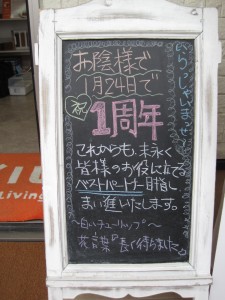 いらっしゃいませ
お陰様で
1月24日で
祝
1周年
これからも、末永く
皆様のお役に立てる
ベストパートナー目指し
まい進いたします。
～白いチューリップ～
花言葉『長く待ちました』
Living